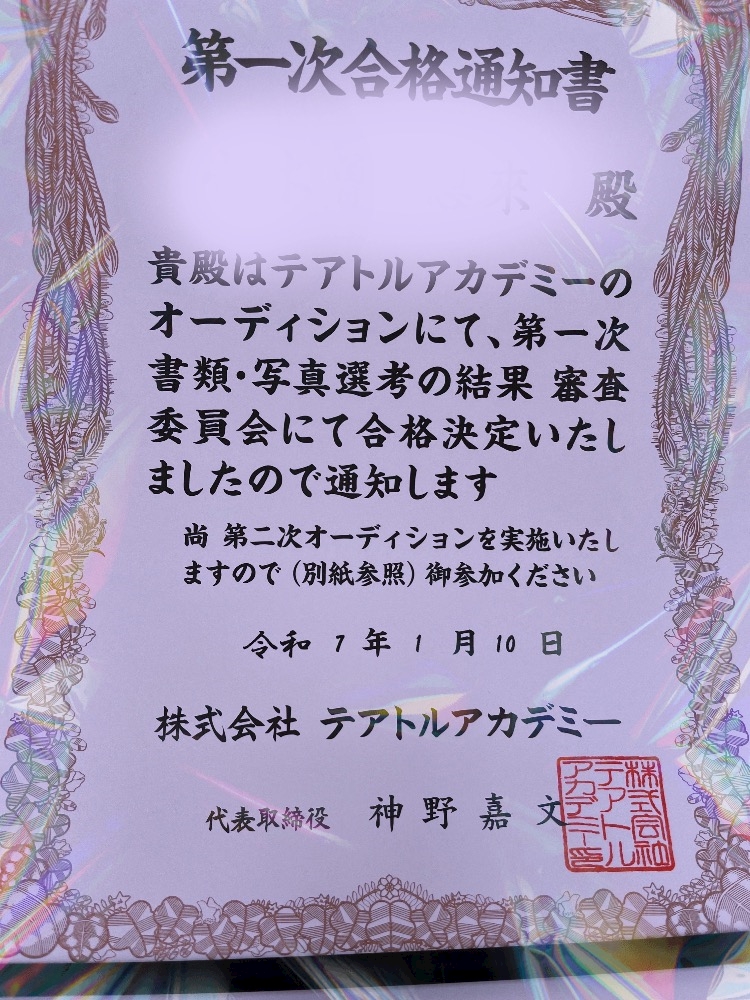 第一次合格通知書
来 殿
貴殿はテアトルアカデミーの
オーディションにて、第一次
書類・写真選考の結果 審査
委員会にて合格決定いたし
ましたので通知します
尚 第二次オーディションを実施いたし
ますので(別紙参照)御参加ください
令和 7 年 1 月 10 日
株式会社 テアトルアカデミー
代表取締役 神野嘉文
株式会社
テアトル
アカデミー印